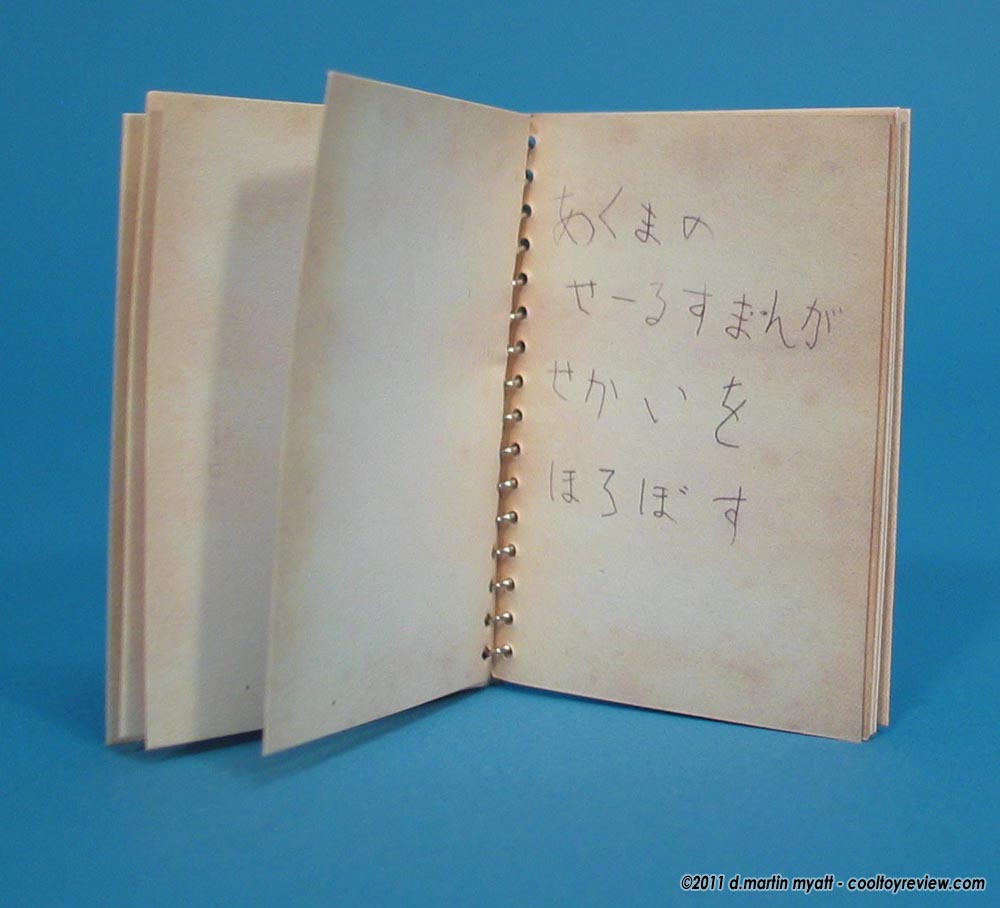 あくまの
せーるすまんが
せかいを
ほろぼす
©2011 d.martin myatt - cooltoyreview.com